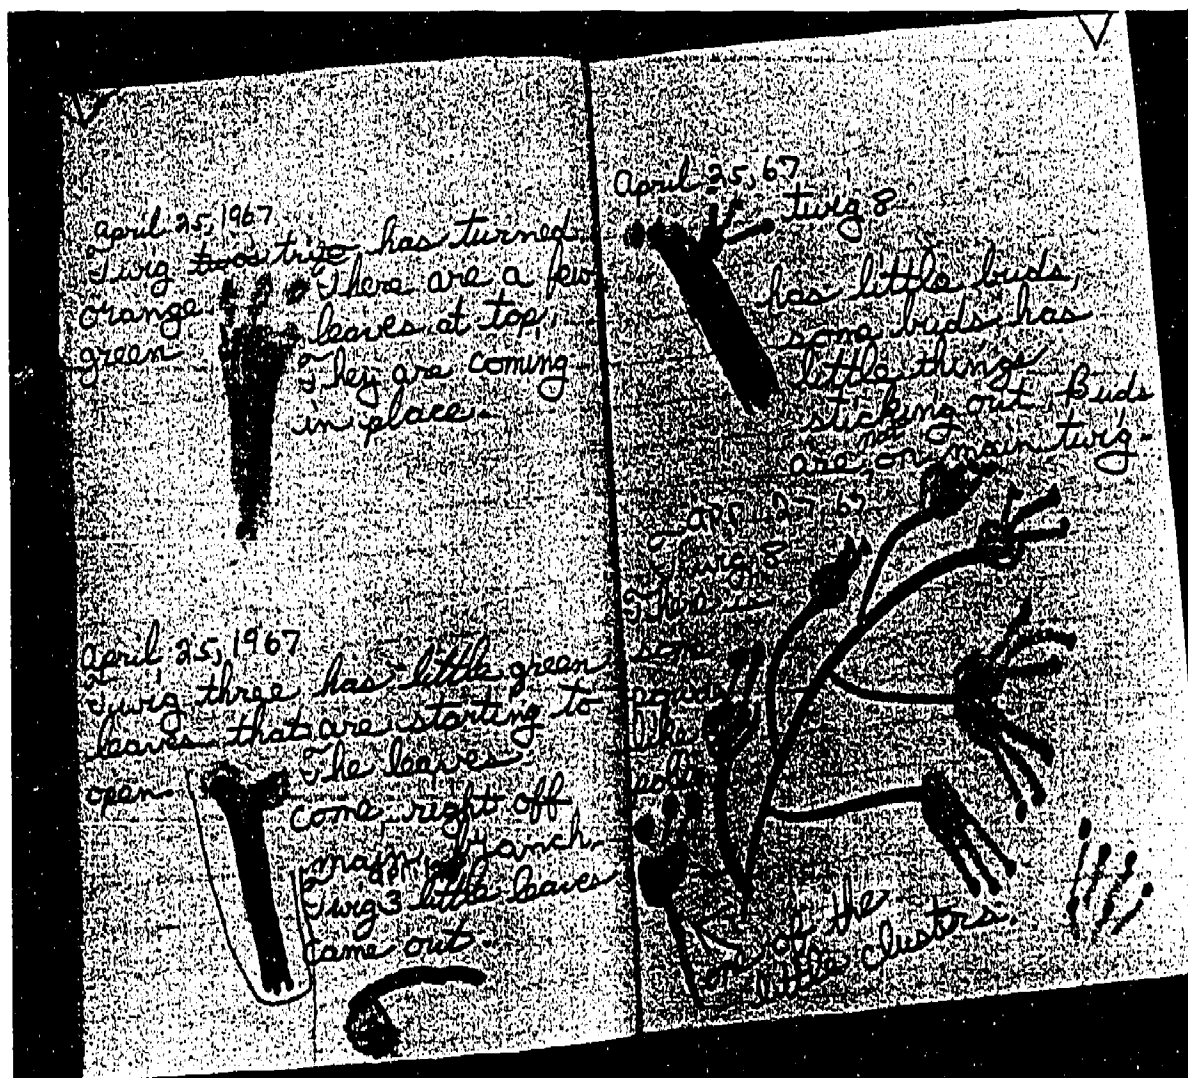 April 25, 1967
Twig has turned
orange There are a few
green leaves at top,
They are coming
in place.
April 25, 1967
Twig three has little green
leaves that are starting to
open. The leaves
come right off
main branch.
Twig 3 little leaves
came out.
April 25, 67
twig 8
has little buds,
some buds has
little things
sticking out Buds
are not on main twig.
Apr. 27, 67
Twig 8
There is
som
like
one of the
little clusters.